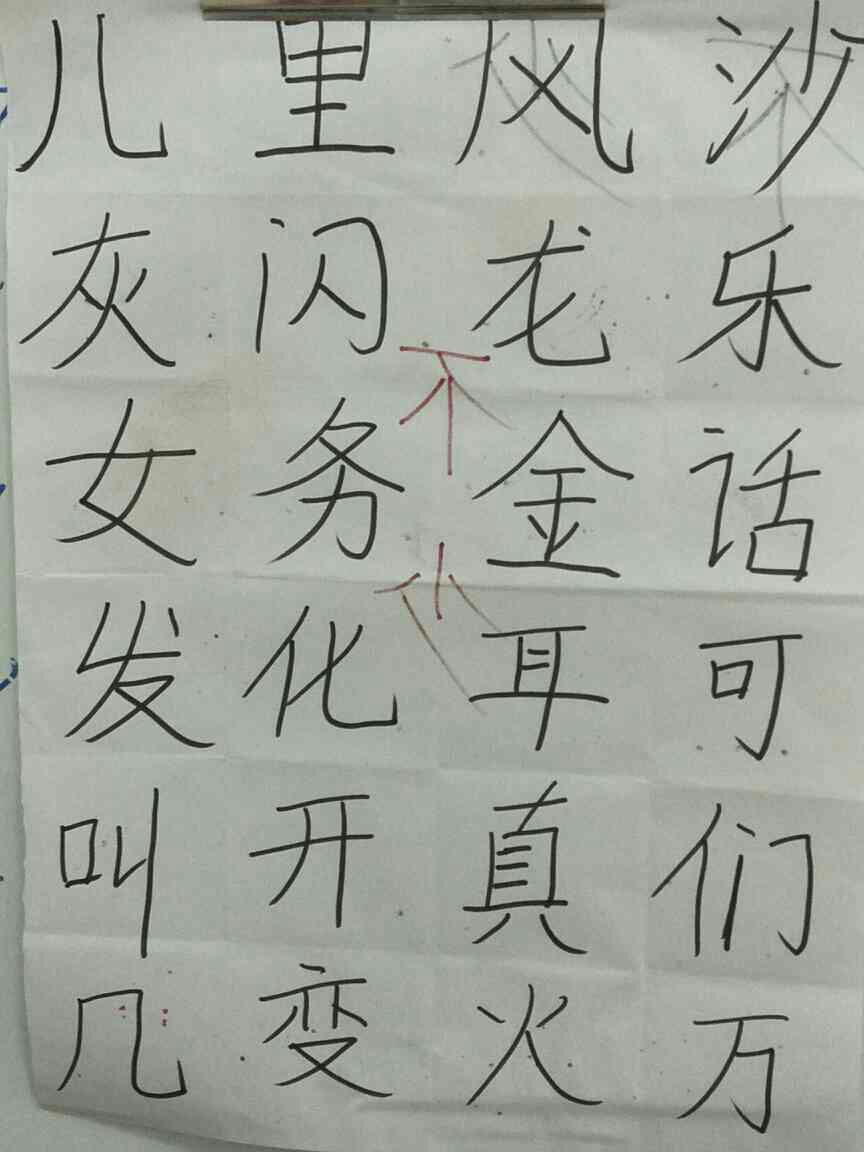 儿里风沙
灰闪龙乐
不
女务金话
小
发化耳可
叫开真们
几变火万